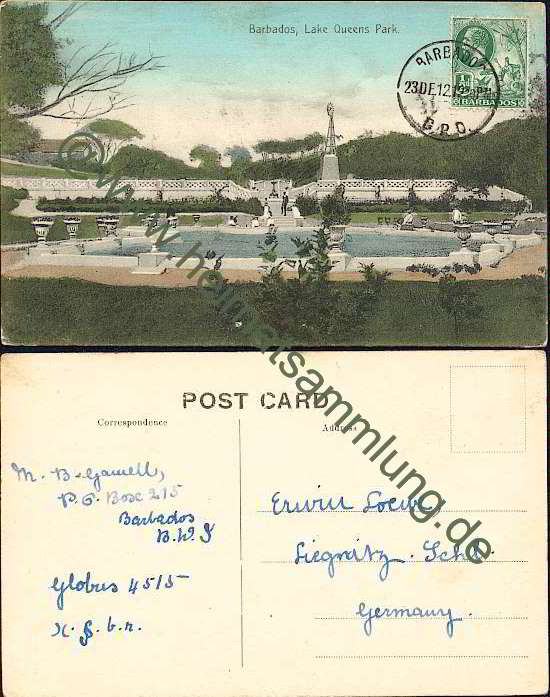 Barbados, Lake Queens Park.
BARBADOS
23 DE 12
G.P.O.
½
BARBADOS
© www.heimatsammlung.de
POST CARD
Correspondence
Address
M. B. Gamell,
P. O. Box 215
Barbados
B. W. I
Globus 4515
Erwin Loewe
Siegnitz. Schl.
Germany.